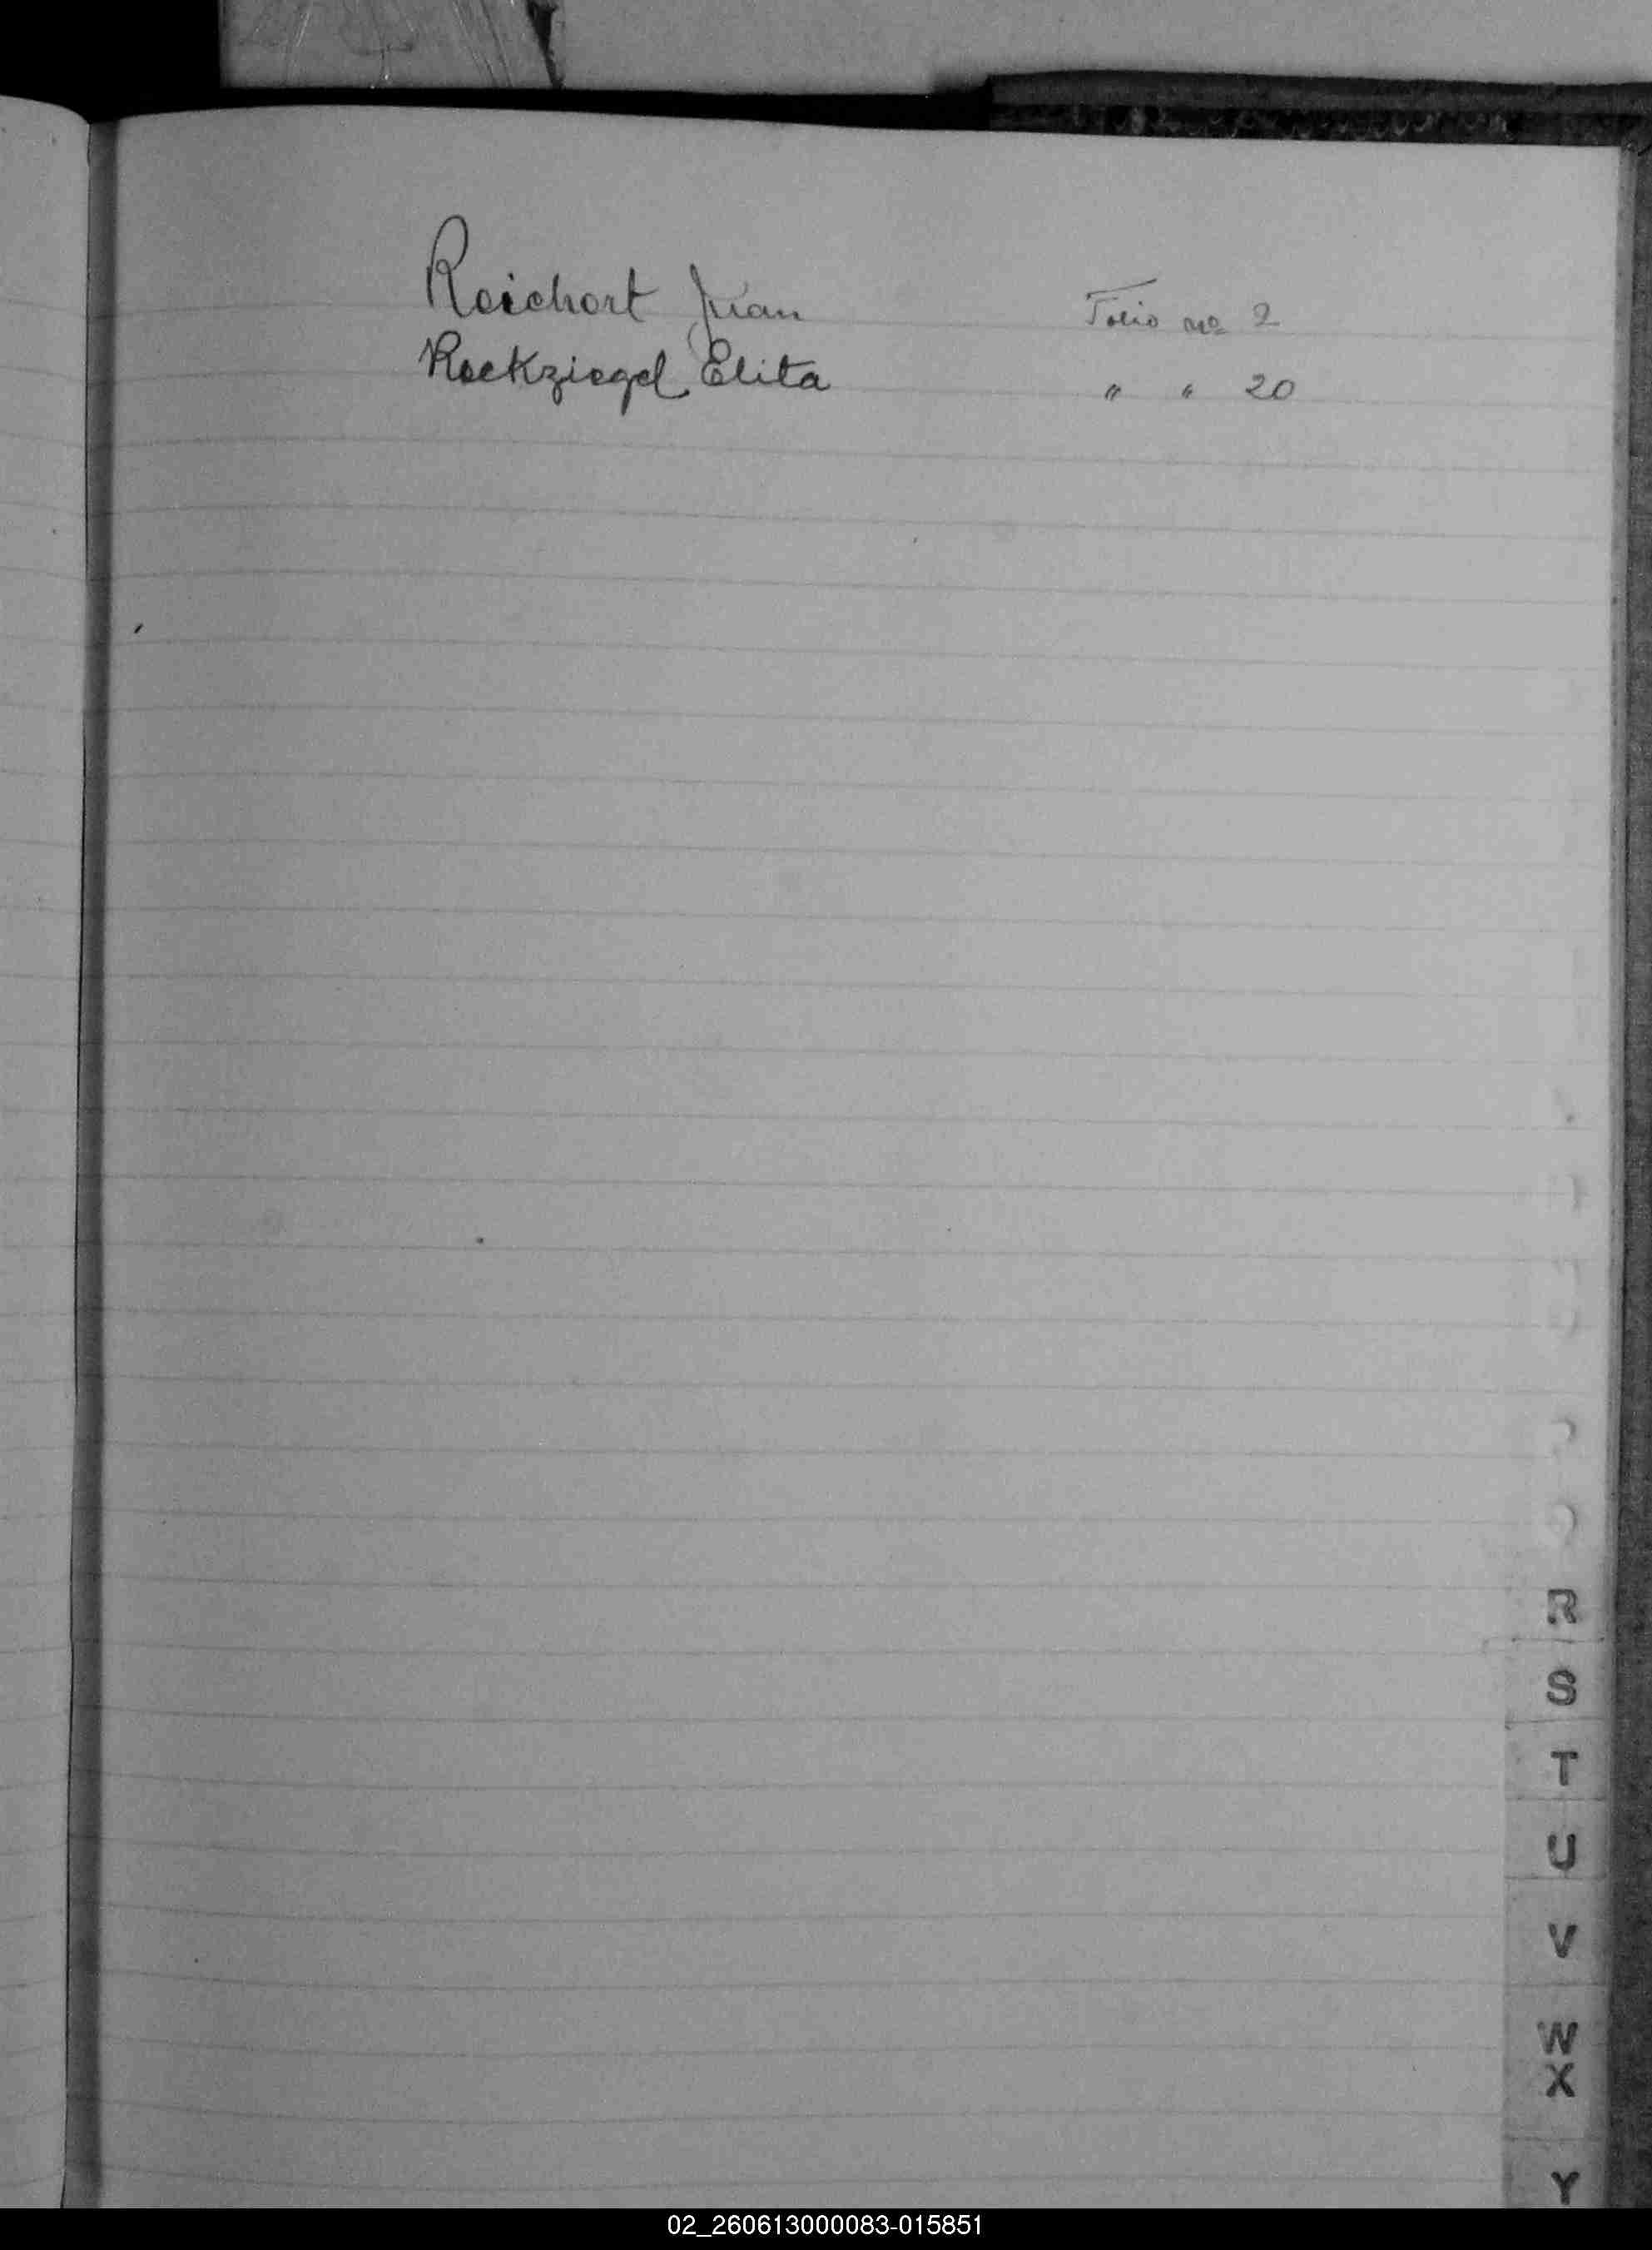 Reichert Juan Folio nº 2
Reekziegel Elita " " 20
R
S
T
U
V
W
X
Y
02_260613000083-015851